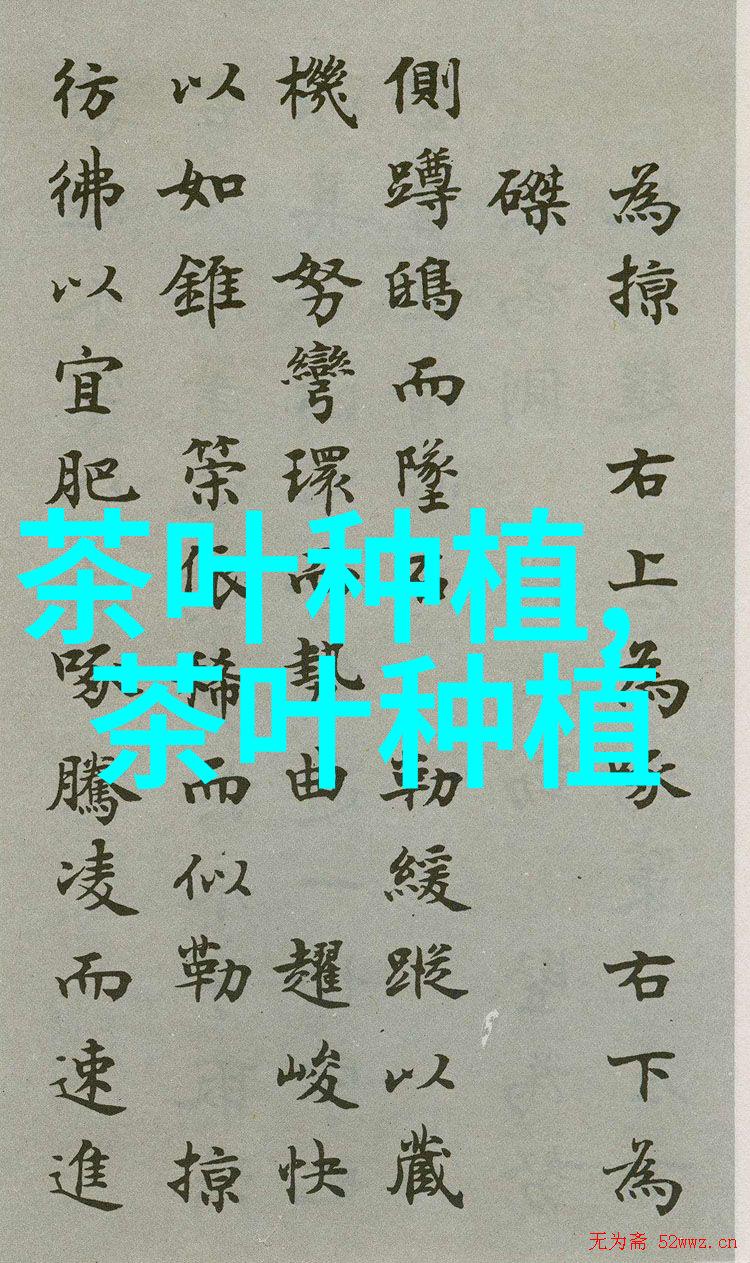 為掠 右上為啄 右下為
磔
側蹲鴟而墜石 勒緩蹤以藏
機 努彎環而勢曲 趯峻快
以如錐 策依稀而似勒 掠
彷彿以宜肥 啄騰凌而速進
茶叶种植,
茶叶种植
无为斋 52wwz.cn